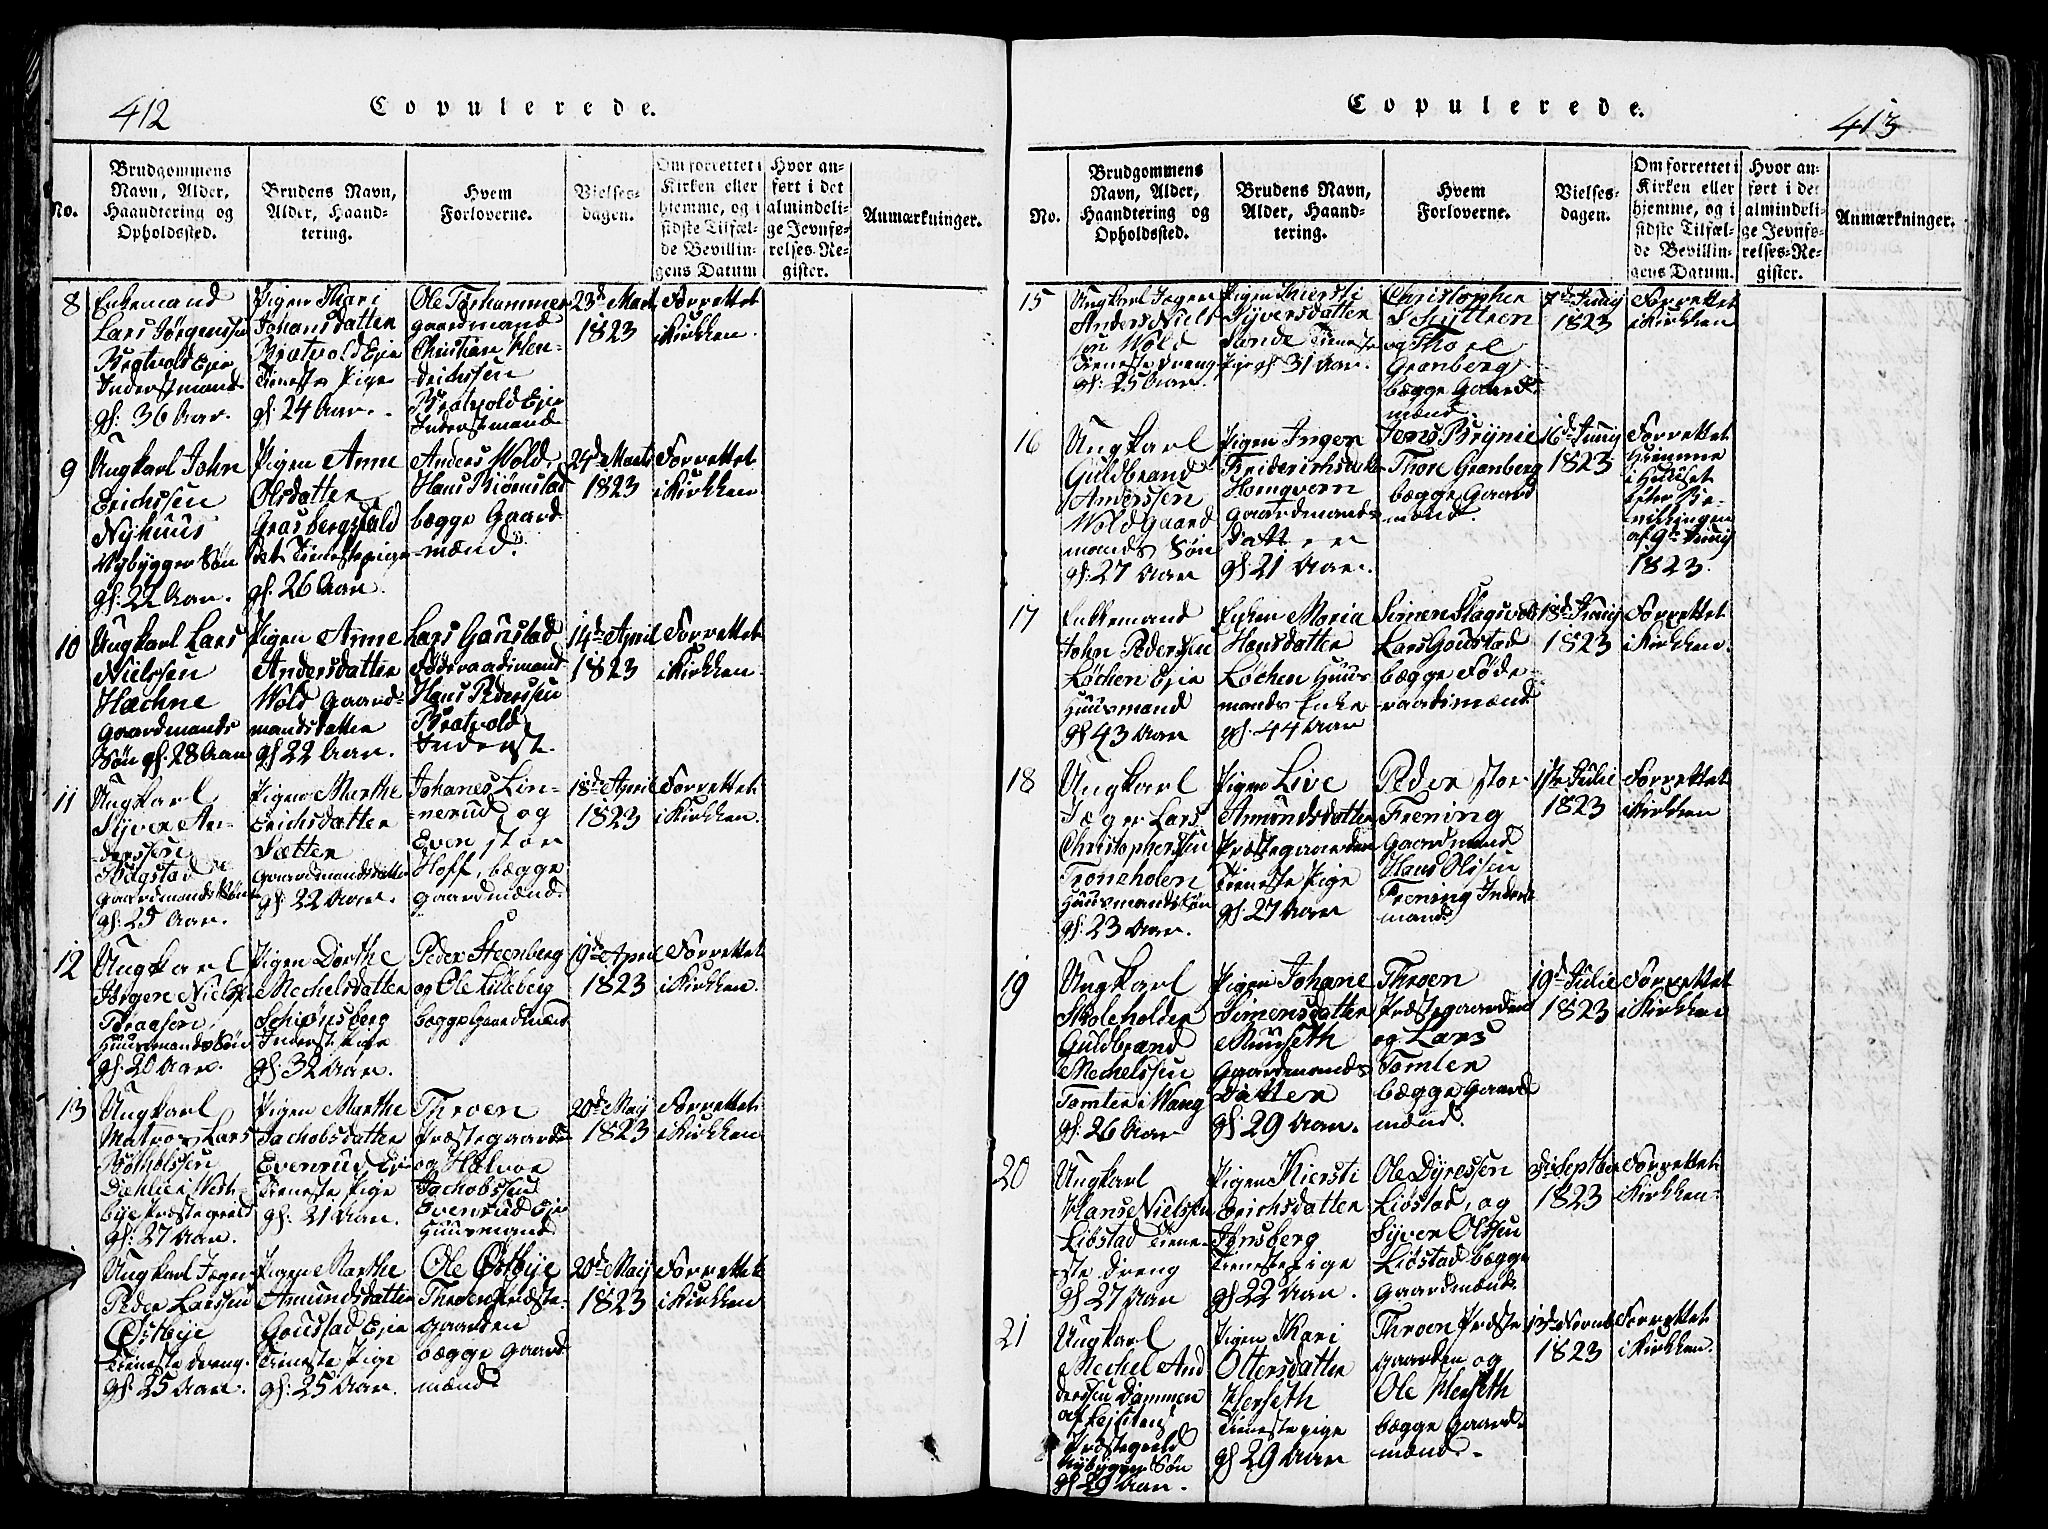 412
Copulerede.
No.
Brudgommens
Navn, Alder,
Haandtering og
Opholdssted.
Brudens Navn,
Alder, Haand-
tering.
Hvem
Forloverne.
Vielses-
dagen.
Om forrettet i
Kirken eller
hjemme, og i
sidste Tilfæl-
de Bevillin-
gens Datum
Hvor an-
ført i det
almindeli-
ge Jevnfø-
relses-Re-
gister.
Anmærkninger.
8
Enkemand
Lars Jørgenssen
Bratvold Eje
Inderstmand
gl: 36 Aar.
Pigen Kari
Johansdatter
Bratvold Eje
Tieneste Pige
gl: 24 Aar.
Ole Torshammer
gaardmand
Christian Hen-
drichssen
Bratvold Eje
Inderstmand
23de Marti
1823
Forrettet
i Kirkken.
9
Ungkarl John
Erichssen
Nyhuus
Nybygger Søn
gl: 22 Aar.
Pigen Anne
Olsdatter
Grasbergs
Tienestepige
gl: 26 Aar.
Anders Wold
Hans Biørnstad
bægge Gaard
-mænd.
1823
Forrettet
i Kirkken
10
Ungkarl Lars
Nielssen
Hæhne
Gaardmands
Søn gl: 28 Aar
Pigen Anne
Andersdatter
Wold Gaard-
mandsdatter
gl: 22 Aar.
Lars Gaustad
Føderaadsmand
Hans Pederssen
Bratvold
Inderst.
14de April
1823
Forrettet
i Kirkken.
11
Ungkarl
Syver An-
derssen
gaardmands Søn
gl: 25 Aar.
Pigen Marthe
Erichsdatter
Sætter
Gaardmandsdatter
gl: 22 Aar.
Johanes Lin-
-nerud og
Even stor
Hoff, bægge
gaardmænd.
18de April
1823
Forrettet
i Kirkken.
12
Ungkarl
Jørgen Nielssen
Braasen,
Huusmands Søn
gl: 20 Aar.
Pigen Dorthe
Mechelsdatter
Schiønsberg
Inderste Pige
gl: 32 Aar.
Peder Steenberg
og Ole Lilleberg
bægge Gaardmænd
19de April
1823
Forrettet
i Kirkken.
13
Ungkarl
Matros Lars
Diehlie i West-
bye Præstegield
gl: 27 Aar.
Pigen Marthe
Jachobsdatter
Evenrud Eje
Tieneste Pige
gl: 21 Aar.
Throen
Præstegaarden
og Halvor
Jachobssen
Evenrud Eje
Huusmand
20de Maij
1823
Forrettet
i Kirkken
Ungkarl Jeger
Peder Larssen
Østbye
Tieneste dreng.
gl: 25 Aar.
Pigen Marthe
Amundsdatter
Goustad Eje
Tieneste Pige
gl: 25 Aar.
Ole Østbye
Throen Præste-
gaarden
bægge Gaard
mænd.
20de Maij
1823
Forrettet
i Kirkken
Copulerede.
413
No.
Brudgommens
Navn, Alder,
Haandtering og
Opholdssted.
Brudens Navn,
Alder, Haand-
tering.
Hvem
Forloverne.
Vielses-
dagen.
Om forrettet i
Kirken eller
hjemme, og i
sidste Tilfæl-
de Bevillin-
gens Datum.
Hvor an-
ført i det
almindeli-
ge Jevnfø-
relses-Re-
gister.
Anmærkninger.
15
Ungkarl Jeger
Anders Niels
sen Wold
Tieneste Dreng
gl: 25 Aar.
Pigen Kiersti
Syversdatter
Sande Tieneste
Pige gl: 31 Aar.
Christopher
Schytten
og Thore
Grønberg
bægge Gaard
mænd.
7de Junij
1823
Forrettet
i Kirkken
16
Ungkarl
Guldbrand
Anderssen
Wold Gaard
mands Søn
gl: 27 Aar
Pigen Inger
Friderichsdatter
Homqvern
Gaardmands
Datter
gl: 21 Aar.
Jens Brynie
Thore Grønberg
bægge Gaard
mænd.
16de Junij
1823
Forrettet
Hiemme
i Huuset
efter Be-
villingen
af 9de Junij
1823.
17
Enkemand
John Pederssen
Løchen Eje
Huusmand
gl: 43 Aar
Enken Maria
Hansdatter
Løchen Huus
mands Enke
gl: 44 Aar
Simen Slagsvold
Lars Goustad
bægge Føde-
raadsmænd
18de Junij
1823
Forrettet
i Kirkken.
18
Ungkarl
Jæger Lars
Christopherssen
Troneholen
Huusmands Søn
gl: 23 Aar.
Pigen Live
Amundsdatter
Præstegaarden
Tieneste Pige
gl: 27 Aar
Peder stor
Frening
Gaardmand
Hans Olssen
Frening Inderst
mand
1ste Julii
1823
Forrettet
i Kirkken
19
Ungkarl
Skoleholder
Guldbrand
Mechelssen
Tomter i Wang
gl: 26 Aar
Pigen Johane
Simensdatter
Muuseth
Gaardmands
Datter
gl: 29 Aar.
Throen
Præstegaarden
og Lars
Tomter
bægge Gaard
mænd.
19de Julie
1823
Forrettet
i Kirkken
20
Ungkarl
Hans Nielssen
Liøstad Tiene-
ste dreng
gl: 27 Aar
Pigen Kiersti
Erichsdatter
Tønsberg
Tieneste Pige
gl: 22 Aar.
Ole Dyressen
Liøstad, og
Syver Olssen
Liøstad bægge
Gaardmænd
1823
Forrettet
i Kirkken
21
Ungkarl
Mechel And
derssen Dammen
Præstegield
Nybygger Søn
gl: 29 Aar.
Pigen Kari
Ottersdatter
Herseth
Tienestepige
gl: 29 Aar
Throen Præste
gaarden og
Ole Herseth
bægge Gaard
mænd.
13de Novemb
1823
Forrettet
i Kirkken.